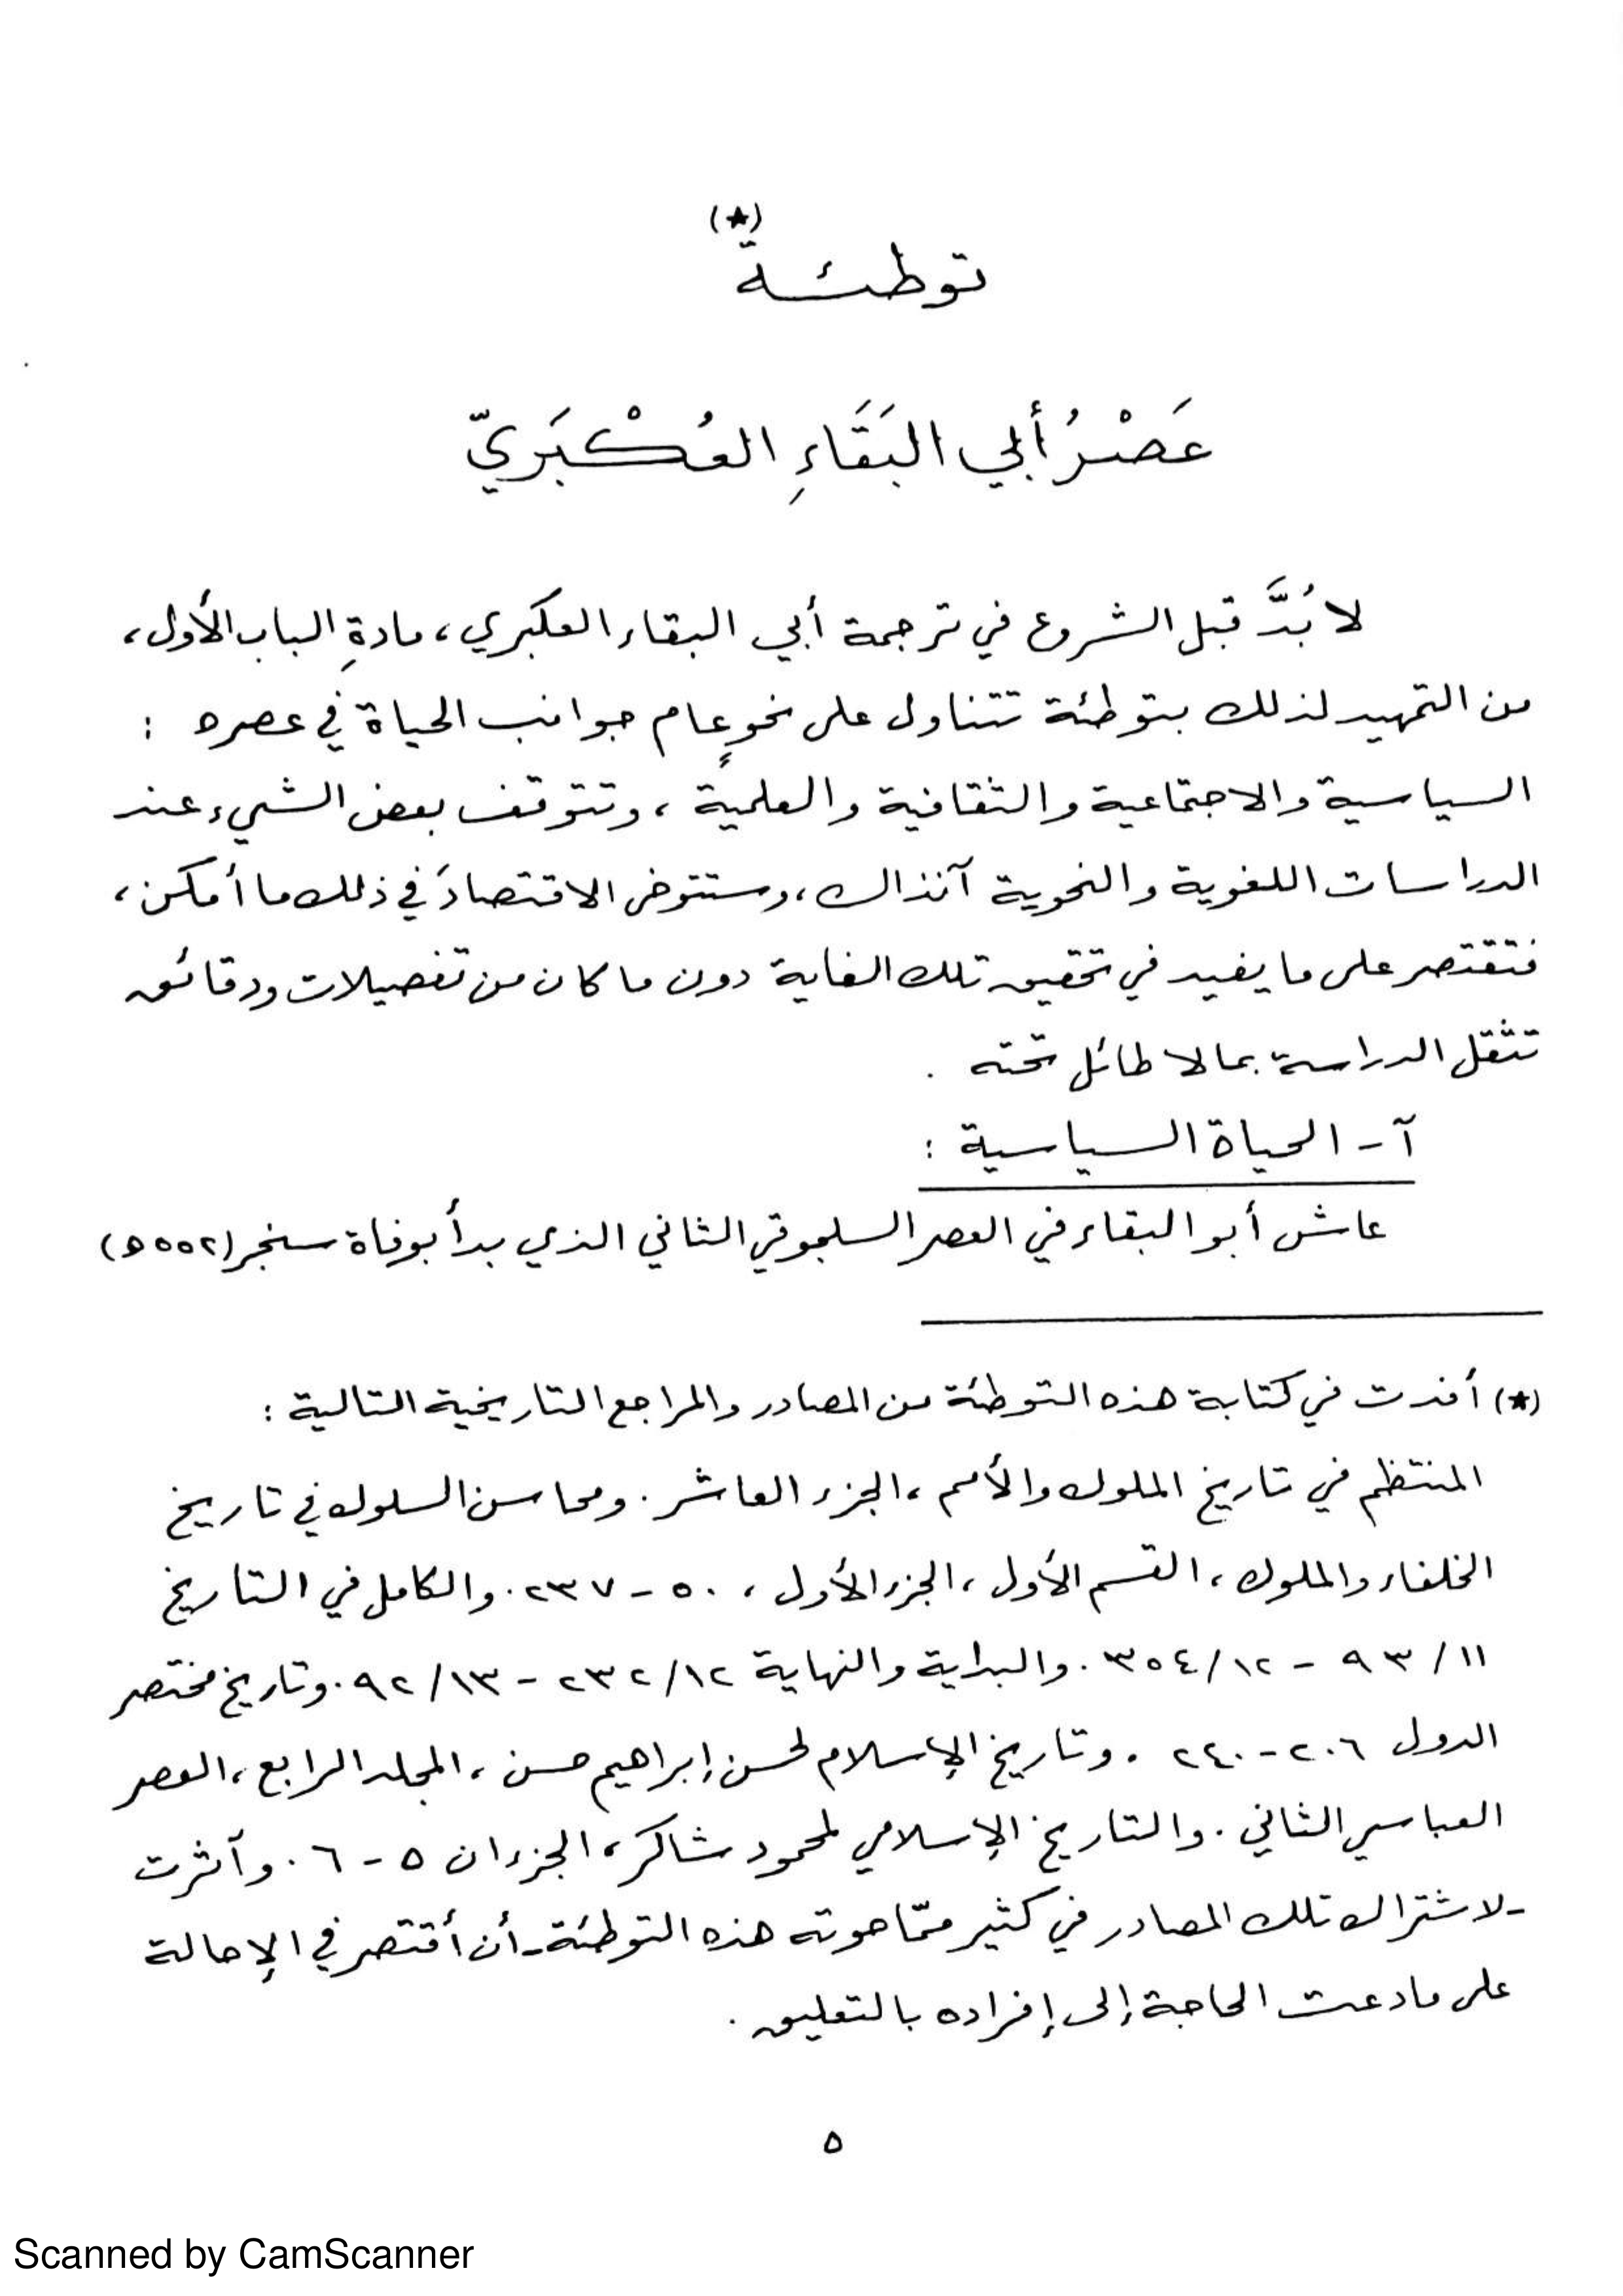 (★)
توطئة
عَصْرُ أبي البَقَاءِ العُكْبَريّ
لا بُدَّ قبل الشروع في ترجمة أبي البقاء العكبري، مادةِ الباب الأول،
من التمهيد لذلك بتوطئة تتناول على نحوٍ عام جوانب الحياة في عصره :
السياسية والاجتماعية والثقافية والعلمية ، وتتوقف بعض الشيء عند
الدراسات اللغوية والنحوية آنذاك، وستتوخى الاقتصادَ في ذلك ما أمكن،
فتقتصر على ما يفيد في تحقيق تلك الغاية دون ما كان من تفصيلات ودقائق
تثقل الدراسة بما لا طائل تحته .
آ - الحياة السياسية :
عاش أبو البقاء في العصر السلجوقي الثاني الذي بدأ بوفاة سنجر (٥٥٢ه)
(★) أفدت في كتابة هذه التوطئة من المصادر والمراجع التاريخية التالية :
المنتظم في تاريخ الملوك والأمم ، الجزء العاشر . ومحاسن السلوك في تاريخ
الخلفاء والملوك ، القسم الأول ، الجزء الأول ، ٥٠ - ٢٣٧. والكامل في التاريخ
١١/ ٩٣ - ١٢/ ٣٥٤. والبداية والنهاية ١٢/ ٢٣٢ - ١٣/ ٩٢. وتاريخ مختصر
الدول ٢٠٦-٢٤٠ . وتاريخ الإسلام لحسن إبراهيم حسن ، المجلد الرابع ، العصر
العباسي الثاني . والتاريخ الإسلامي لمحمود شاكر، الجزءان ٥ - ٦ . وآثرت
- لاشتراك تلك المصادر في كثير ممّا حوته هذه التوطئة - أن أقتصر في الإحالة
على ما دعت الحاجة إلى إفراده بالتعليق .
٥
Scanned by CamScanner